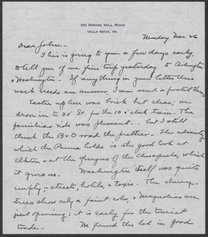 520 SPRING MILL ROAD
VILLA NOVA, PA.
Monday, Mar 26
Dear John -
This is going to you a few days early,
to tell you of our fine trip yesterday to Arlington
& Washington. If anything in your letter this
week needs an answer, I can send a postal
Easter open was brisk but clear; we
drove in to 30" St. for the 10 o'clock train. The
familiar ride was pleasant. but I still
think the B & O road the prettier. The advantage
which the Penna holds is the good look at
at the fringes of the Chesapeake, which
it gives us. Washington itself was quite
empty - street, hotels & taxis. The cherry-
trees show only a faint color, & magnolias are
just opening; it is early for the tourist
trade. We found the lad in good